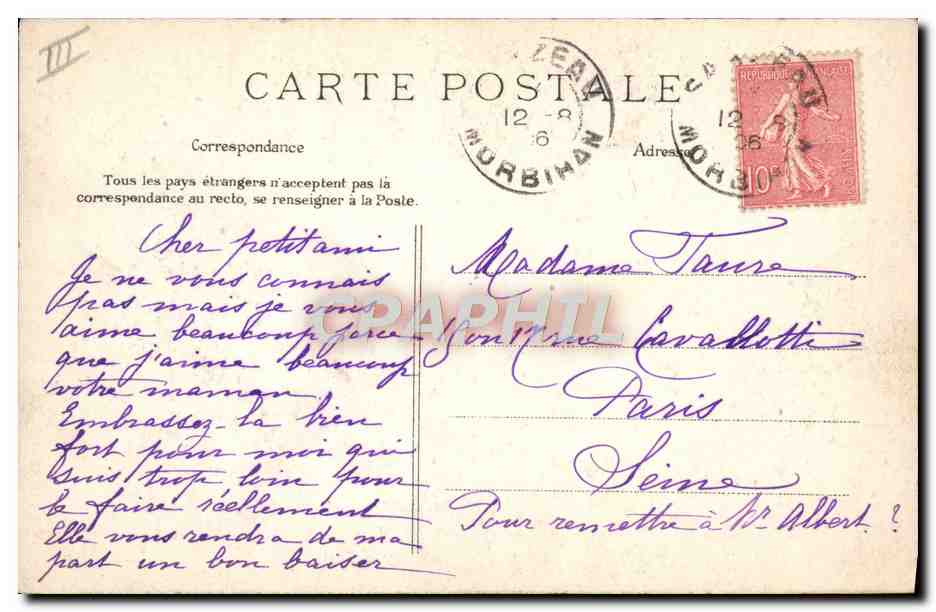 III
CARTE POSTALE
ZEAU
12 -8
6
MORBIHAN
12 8
06
MORBI
REPUBLIQUE FRANÇAISE
10
Correspondance
Adresse
Tous les pays étrangers n'acceptent pas la
correspondance au recto, se renseigner à la Poste.
Cher petit ami
Je ne vous connais
pas mais je vous
aime beaucoup parce
que j'aime beaucoup
votre maman
Embrassez-la bien
fort pour moi qui
suis trop loin pour
le faire réellement
Elle vous rendra de ma
part un bon baiser
Madame Faure
rue Cavallotti
Paris
Seine
Pour remettre à Mr Albert ?
CPAPHIL